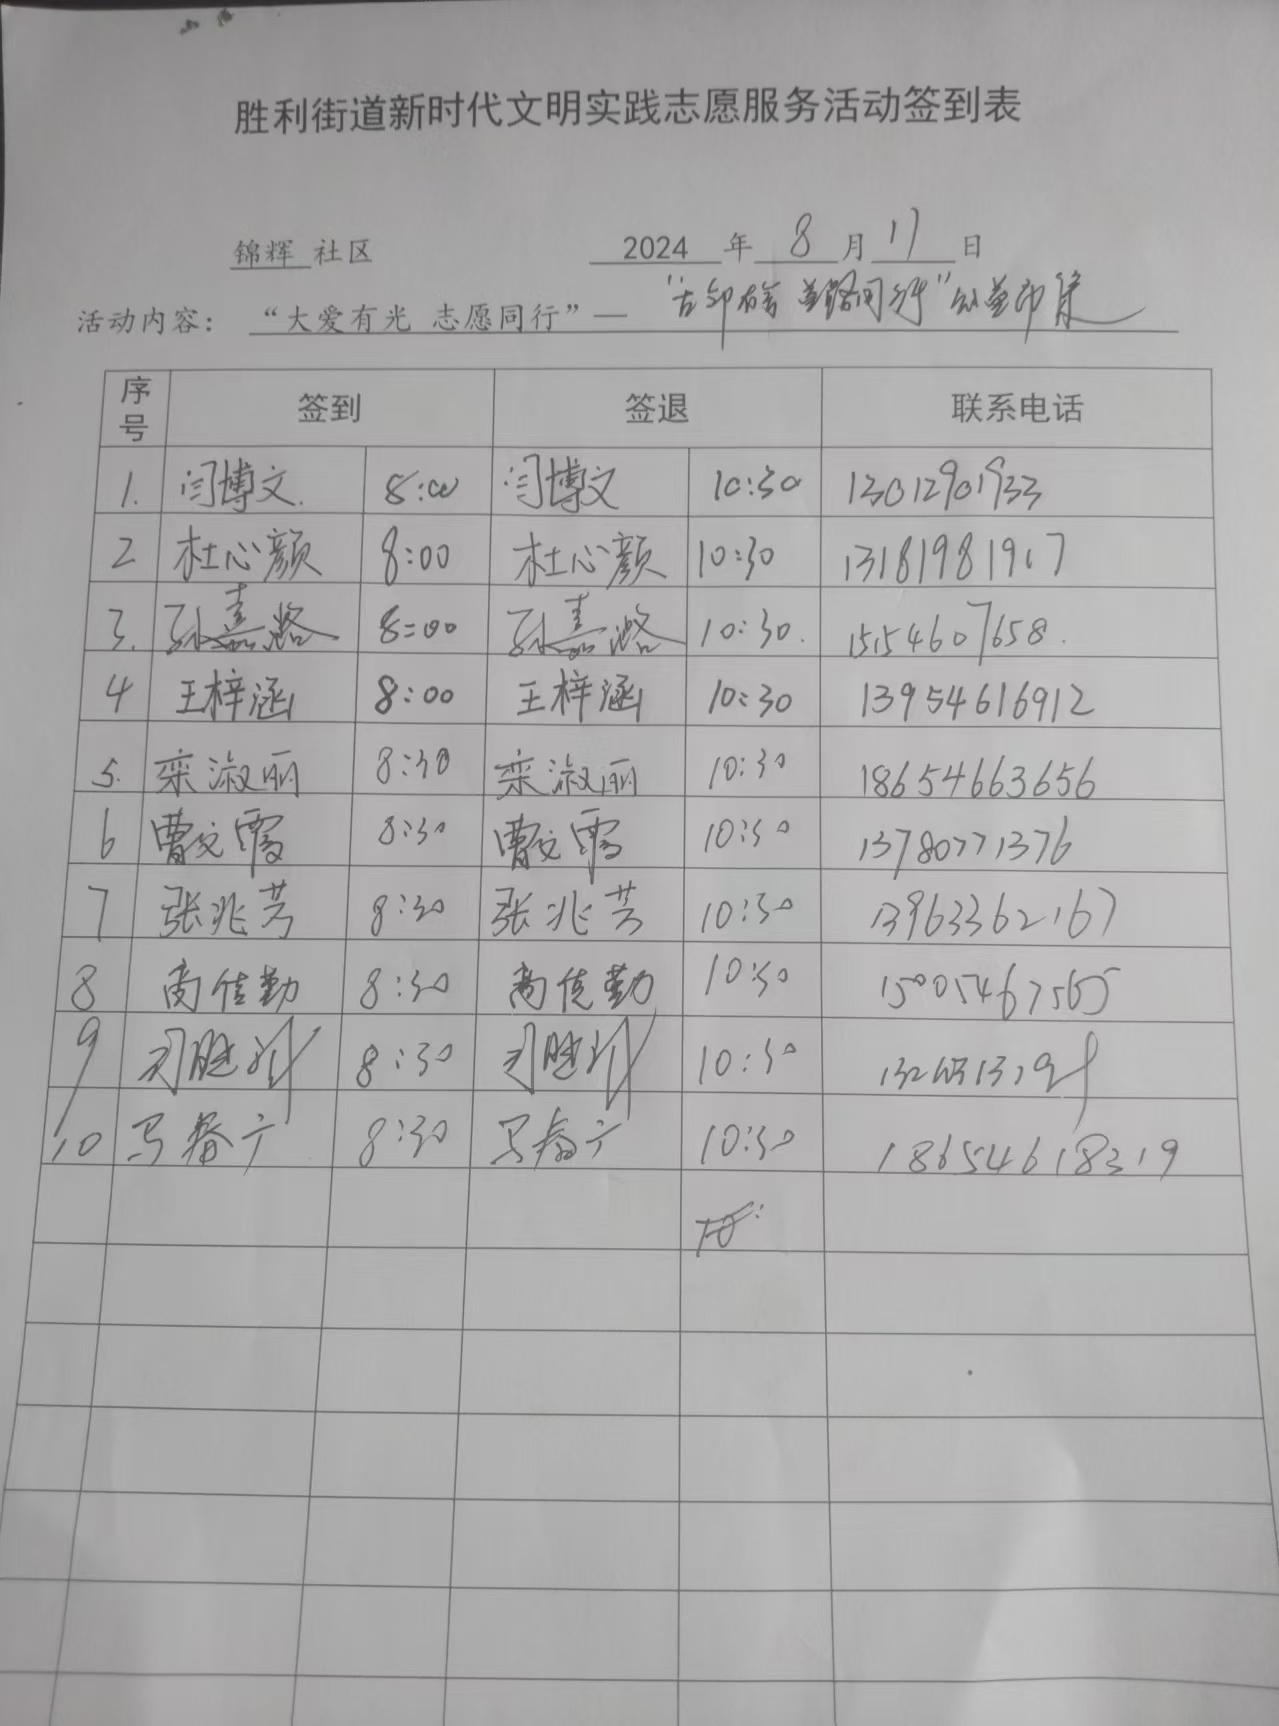 胜利街道新时代文明实践志愿服务活动签到表
锦辉 社区 2024 年 8 月 17 日
活动内容： “大爱有光 志愿同行”— 同行”
序号 签到 签退 联系电话
1. 闫博文. 8:00 闫博文 10:30 13012901933
2 杜心颜 8:00 杜心颜 10:30 13181981917
3. 孙嘉潞 8:00 孙嘉潞 10:30. 15154607658.
4 王梓涵 8:00 王梓涵 10:30 13954616912
5. 栾淑丽 8:30 栾淑丽 10:30 18654663656
6 曹文霞 8:30 曹文霞 10:30 13780771376
7 张兆芳 8:30 张兆芳 10:30 13963362167
8 高信勤 8:30 高信勤 10:30 15005467565
9 8:30 10:30
10 马春广 8:30 马春广 10:30 18654618319